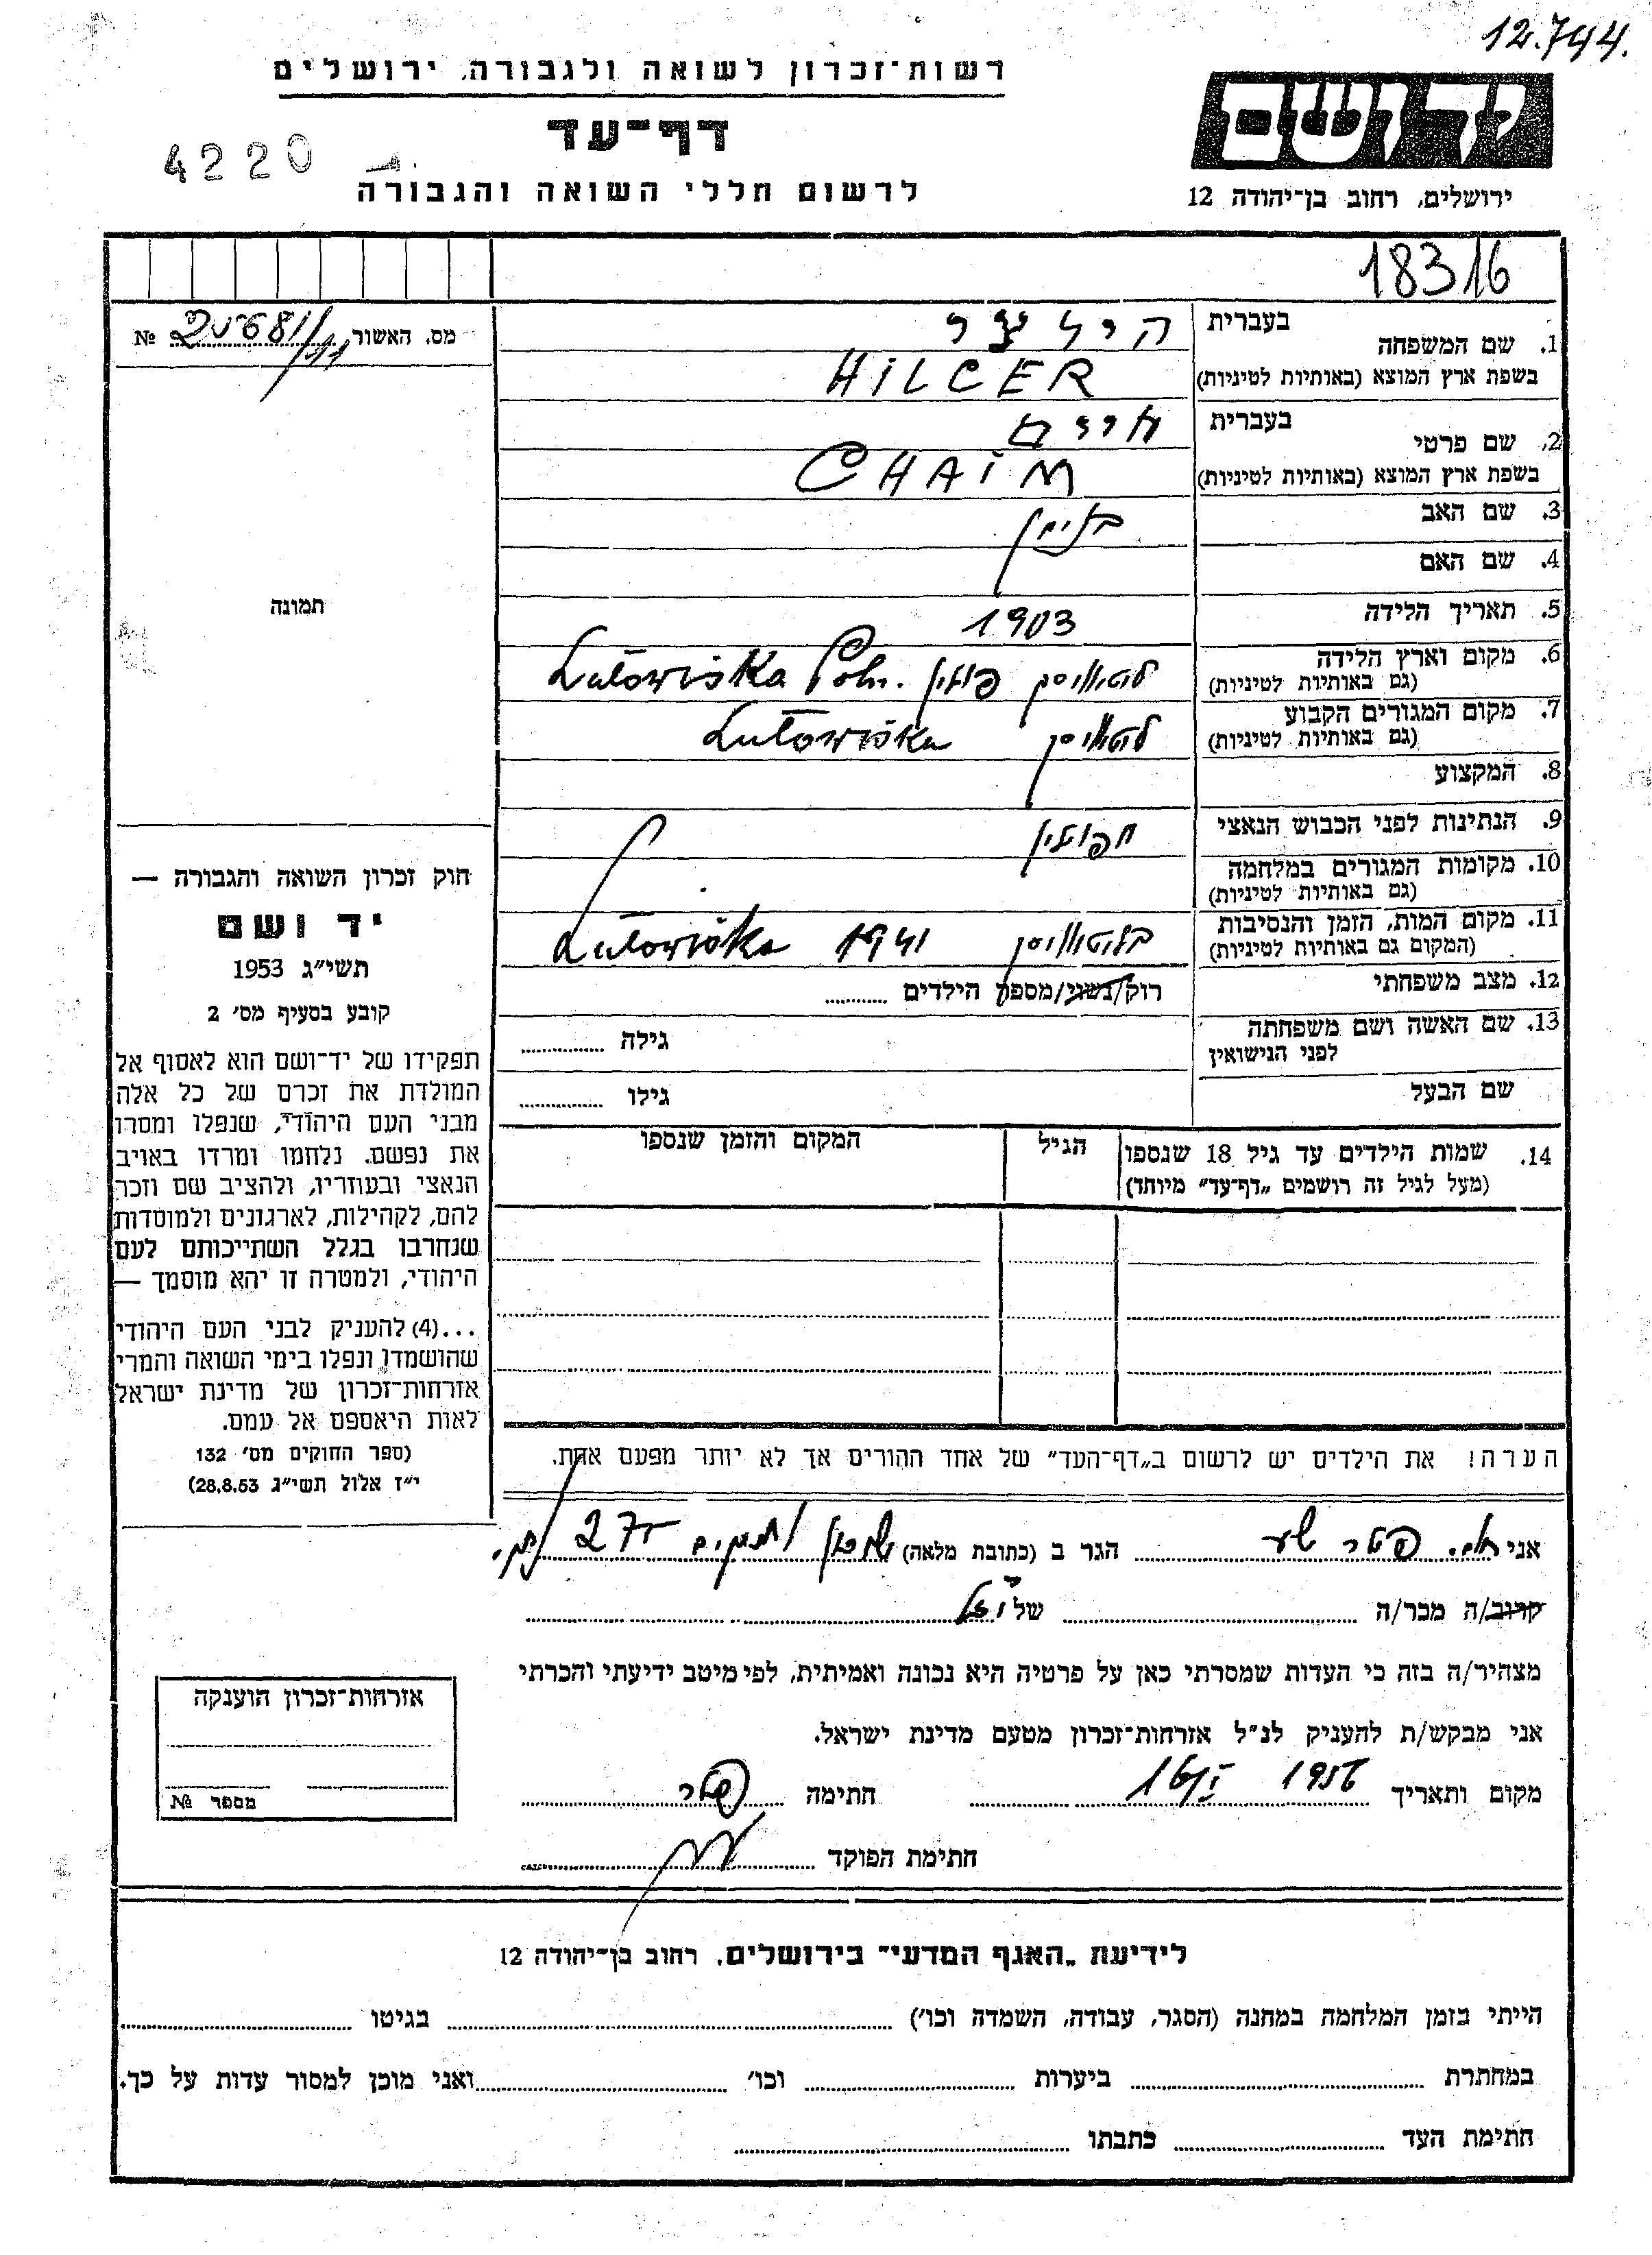 12.744.
רשות־זכרון לשואה ולגבורה, ירושלים
דף־עד
לרשום חללי השואה והגבורה
4220
יד ושם
ירושלים, רחוב בן־יהודה 12
18316
מס. האשור №
1. שם המשפחה
בעברית הילצר
בשפת ארץ המוצא (באותיות לטיניות) HILCER
2. שם פרטי
בעברית חיים
בשפת ארץ המוצא (באותיות לטיניות) CHAIM
3. שם האב
4. שם האם
5. תאריך הלידה 1903
6. מקום וארץ הלידה
(גם באותיות לטיניות) פולין Lutowiska Poln.
7. מקום המגורים הקבוע
(גם באותיות לטיניות) Lutowiska
8. המקצוע
9. הנתינות לפני הכבוש הנאצי
10. מקומות המגורים במלחמה
(גם באותיות לטיניות)
11. מקום המות, הזמן והנסיבות
(המקום גם באותיות לטיניות) 1941 Lutowiska
12. מצב משפחתי רוק/נשוי/מספר הילדים
13. שם האשה ושם משפחתה
לפני הנישואין גילה
שם הבעל גילו
14. שמות הילדים עד גיל 18 שנספו
(מעל לגיל זה רושמים „דף־עד" מיוחד)
הגיל
המקום והזמן שנספו
תמונה
חוק זכרון השואה והגבורה —
יד ושם
תשי"ג 1953
קובע בסעיף מס' 2
תפקידו של יד־ושם הוא לאסוף אל
המולדת את זכרם של כל אלה
מבני העם היהודי, שנפלו ומסרו
את נפשם, נלחמו ומרדו באויב
הנאצי ובעוזריו, ולהציב שם וזכר
להם, לקהילות, לארגונים ולמוסדות
שנחרבו בגלל השתייכותם לעם
היהודי, ולמטרה זו יהא מוסמך —
...(4) להעניק לבני העם היהודי
שהושמדו ונפלו בימי השואה והמרי
אזרחות־זכרון של מדינת ישראל
לאות היאספם אל עמם.
(ספר החוקים מס' 132
י"ז אלול תשי"ג 28.8.53)
הערה! את הילדים יש לרשום ב„דף־העד" של אחד ההורים אך לא יותר מפעם אחת.
אני הגר ב (כתובת מלאה) 27
קרוב/ה מכר/ה של
מצהיר/ה בזה כי העדות שמסרתי כאן על פרטיה היא נכונה ואמיתית, לפי מיטב ידיעתי והכרתי
אני מבקש/ת להעניק לנ"ל אזרחות־זכרון מטעם מדינת ישראל.
מקום ותאריך 1956 חתימה
חתימת הפוקד
אזרחות־זכרון הוענקה
מספר №
לידיעת „האגף המדעי" בירושלים, רחוב בן־יהודה 12
הייתי בזמן המלחמה במחנה (הסגר, עבודה, השמדה וכו') בגיטו
במחתרת ביערות וכו' ואני מוכן למסור עדות על כך.
חתימת העד כתבתו